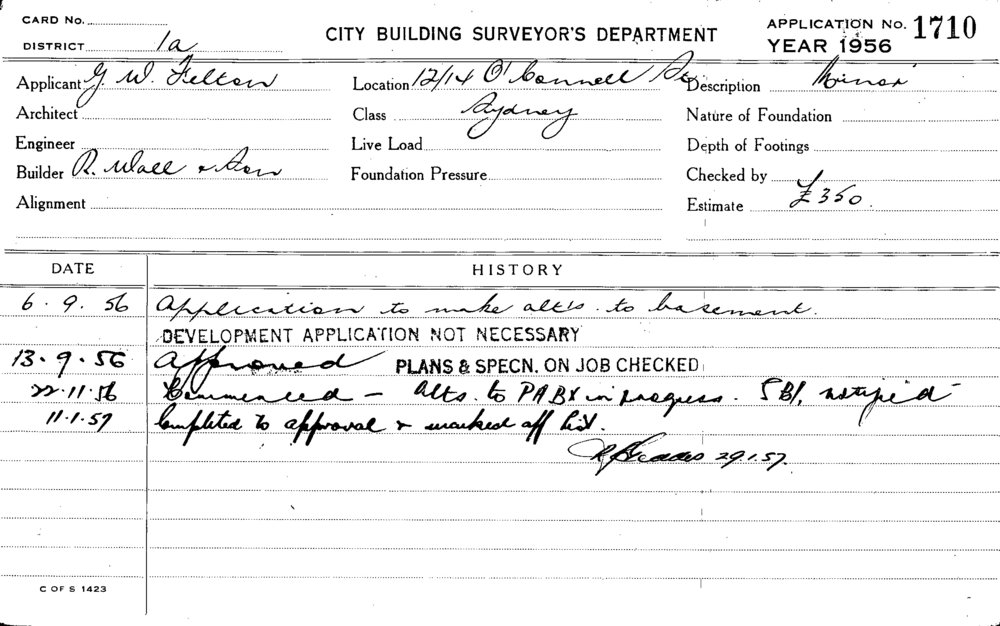 CARD No.
DISTRICT 1a
CITY BUILDING SURVEYOR'S DEPARTMENT
APPLICATION No. 1710
YEAR 1956
Applicant G. W. Felton
Location 12/14 O'Connell St.
Description Minor
Architect
Class Sydney
Nature of Foundation
Engineer
Live Load
Depth of Footings
Builder R. Wall & Son
Foundation Pressure
Checked by
Alignment
Estimate £350.
DATE HISTORY
6. 9. 56 Application to make alt's. to basement.
DEVELOPMENT APPLICATION NOT NECESSARY
13. 9. 56 Approved PLANS & SPECN. ON JOB CHECKED
22.11.56 Commenced - Alts. to PABX in progress. notified
11.1.57 Completed to approval & marked off list.
29.1.57.
C OF S 1423